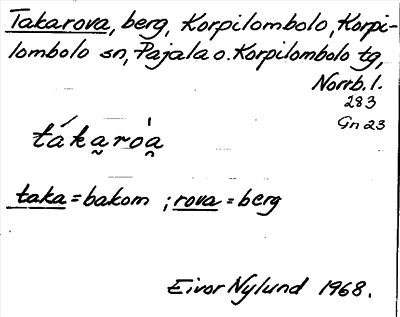 Takarova, berg, Korpilombolo, Korpi-
lombolo sn, Pajala o. Korpilombolo tg,
Norrb. l.
283
Gn 23
táka̰ròa̯
taka = bakom ; rova = berg
Eivor Nylund 1968.